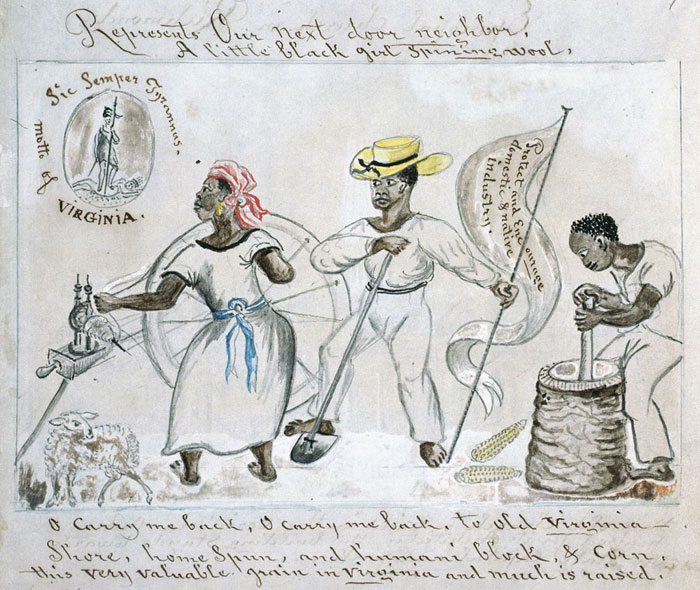 Represents Our next door neighbor,
A little black girl Spining wool,
Sic Semper Tyrannus.
motto of
VIRGINIA.
Protect and Encourage
domestic & native
Industry
O Carry me back, O Carry me back, to old Virginia
Shore, home Spun, and humani block, & Corn.
this very valuable grain in Virginia and much is raised.